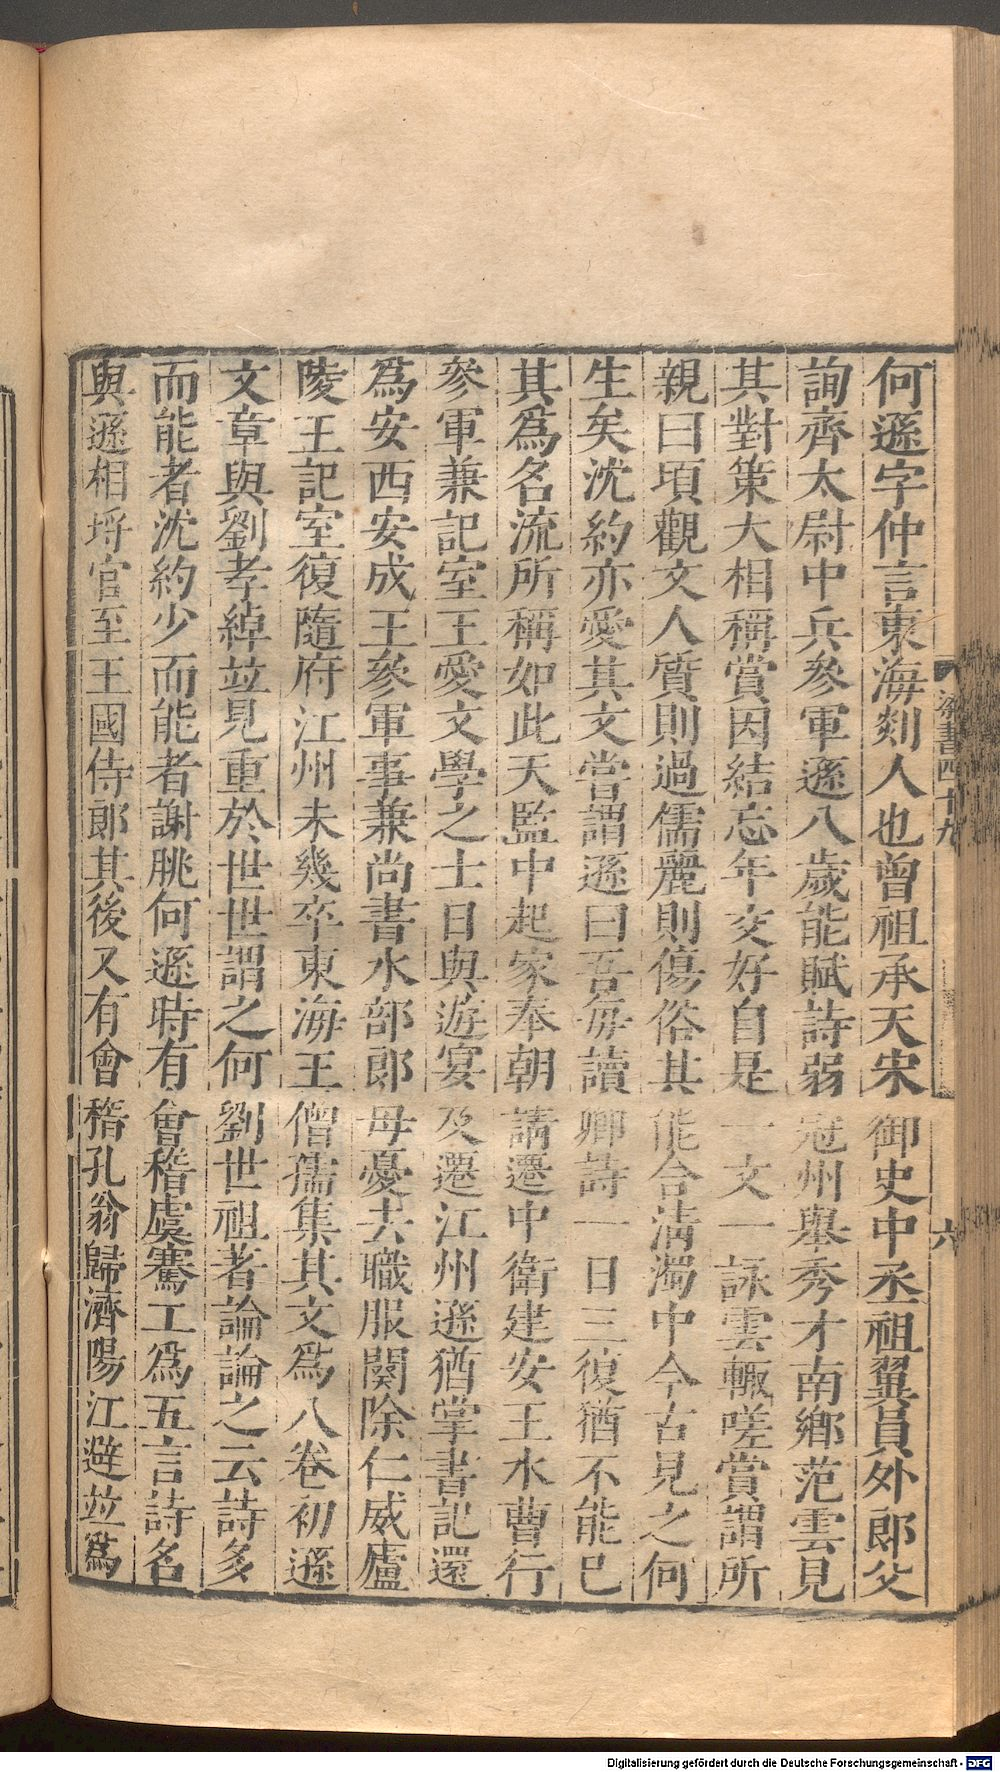 何遜字仲言東海郯人也曾祖承天宋御史中丞祖翼員外郎父
詢齊太尉中兵參軍遜八歲能賦詩弱冠州舉秀才南鄉范雲見
其對策大相稱賞因結忘年交好自是一文一詠雲輒嗟賞謂所
親曰頃觀文人質則過儒麗則傷俗其能含淸濁中今古見之何
生矣沈約亦愛其文嘗謂遜曰吾每讀卿詩一日三復猶不能已
其爲名流所稱如此天監中起家奉朝請遷中衛建安王水曹行
參軍兼記室王愛文學之士日與遊宴及遷江州遜猶掌書記還
爲安西安成王參軍事兼尚書水部郎母憂去職服闋除仁威廬
陵王記室復隨府江州未幾卒東海王僧孺集其文爲八卷初遜
文章與劉孝綽竝見重於世世謂之何劉世祖著論論之云詩多
而能者沈約少而能者謝朓何遜時有會稽虞騫工爲五言詩名
與遜相埓官至王國侍郎其後又有會稽孔翁歸濟陽江避竝爲
梁書四十九
六
Digitalisierung gefördert durch die Deutsche Forschungsgemeinschaft - DFG